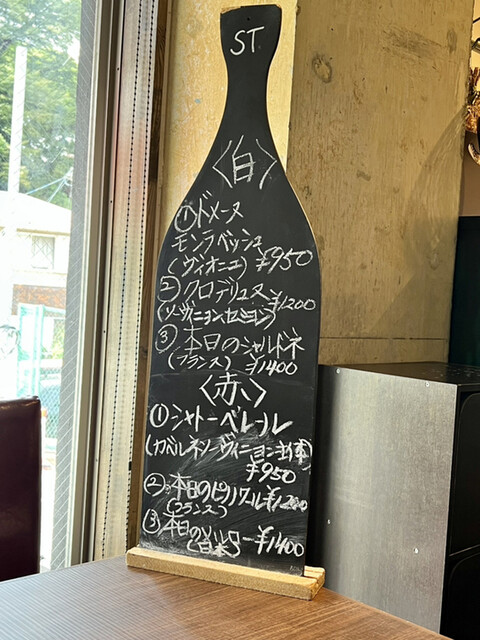 ST
〈白〉
①ドメーヌ
モンラベッシュ
(ヴィオニエ) ¥950
②クロデリュヌ ¥1200
(ソーヴィニヨン、セミヨン)
③本日のシャルドネ
(フランス) ¥1400
〈赤〉
①シャトーベレール
(カベルネソーヴィニヨン主体)
¥950
②本日のピノノワール ¥1200
(フランス)
③本日のメルロー ¥1400
(日本)